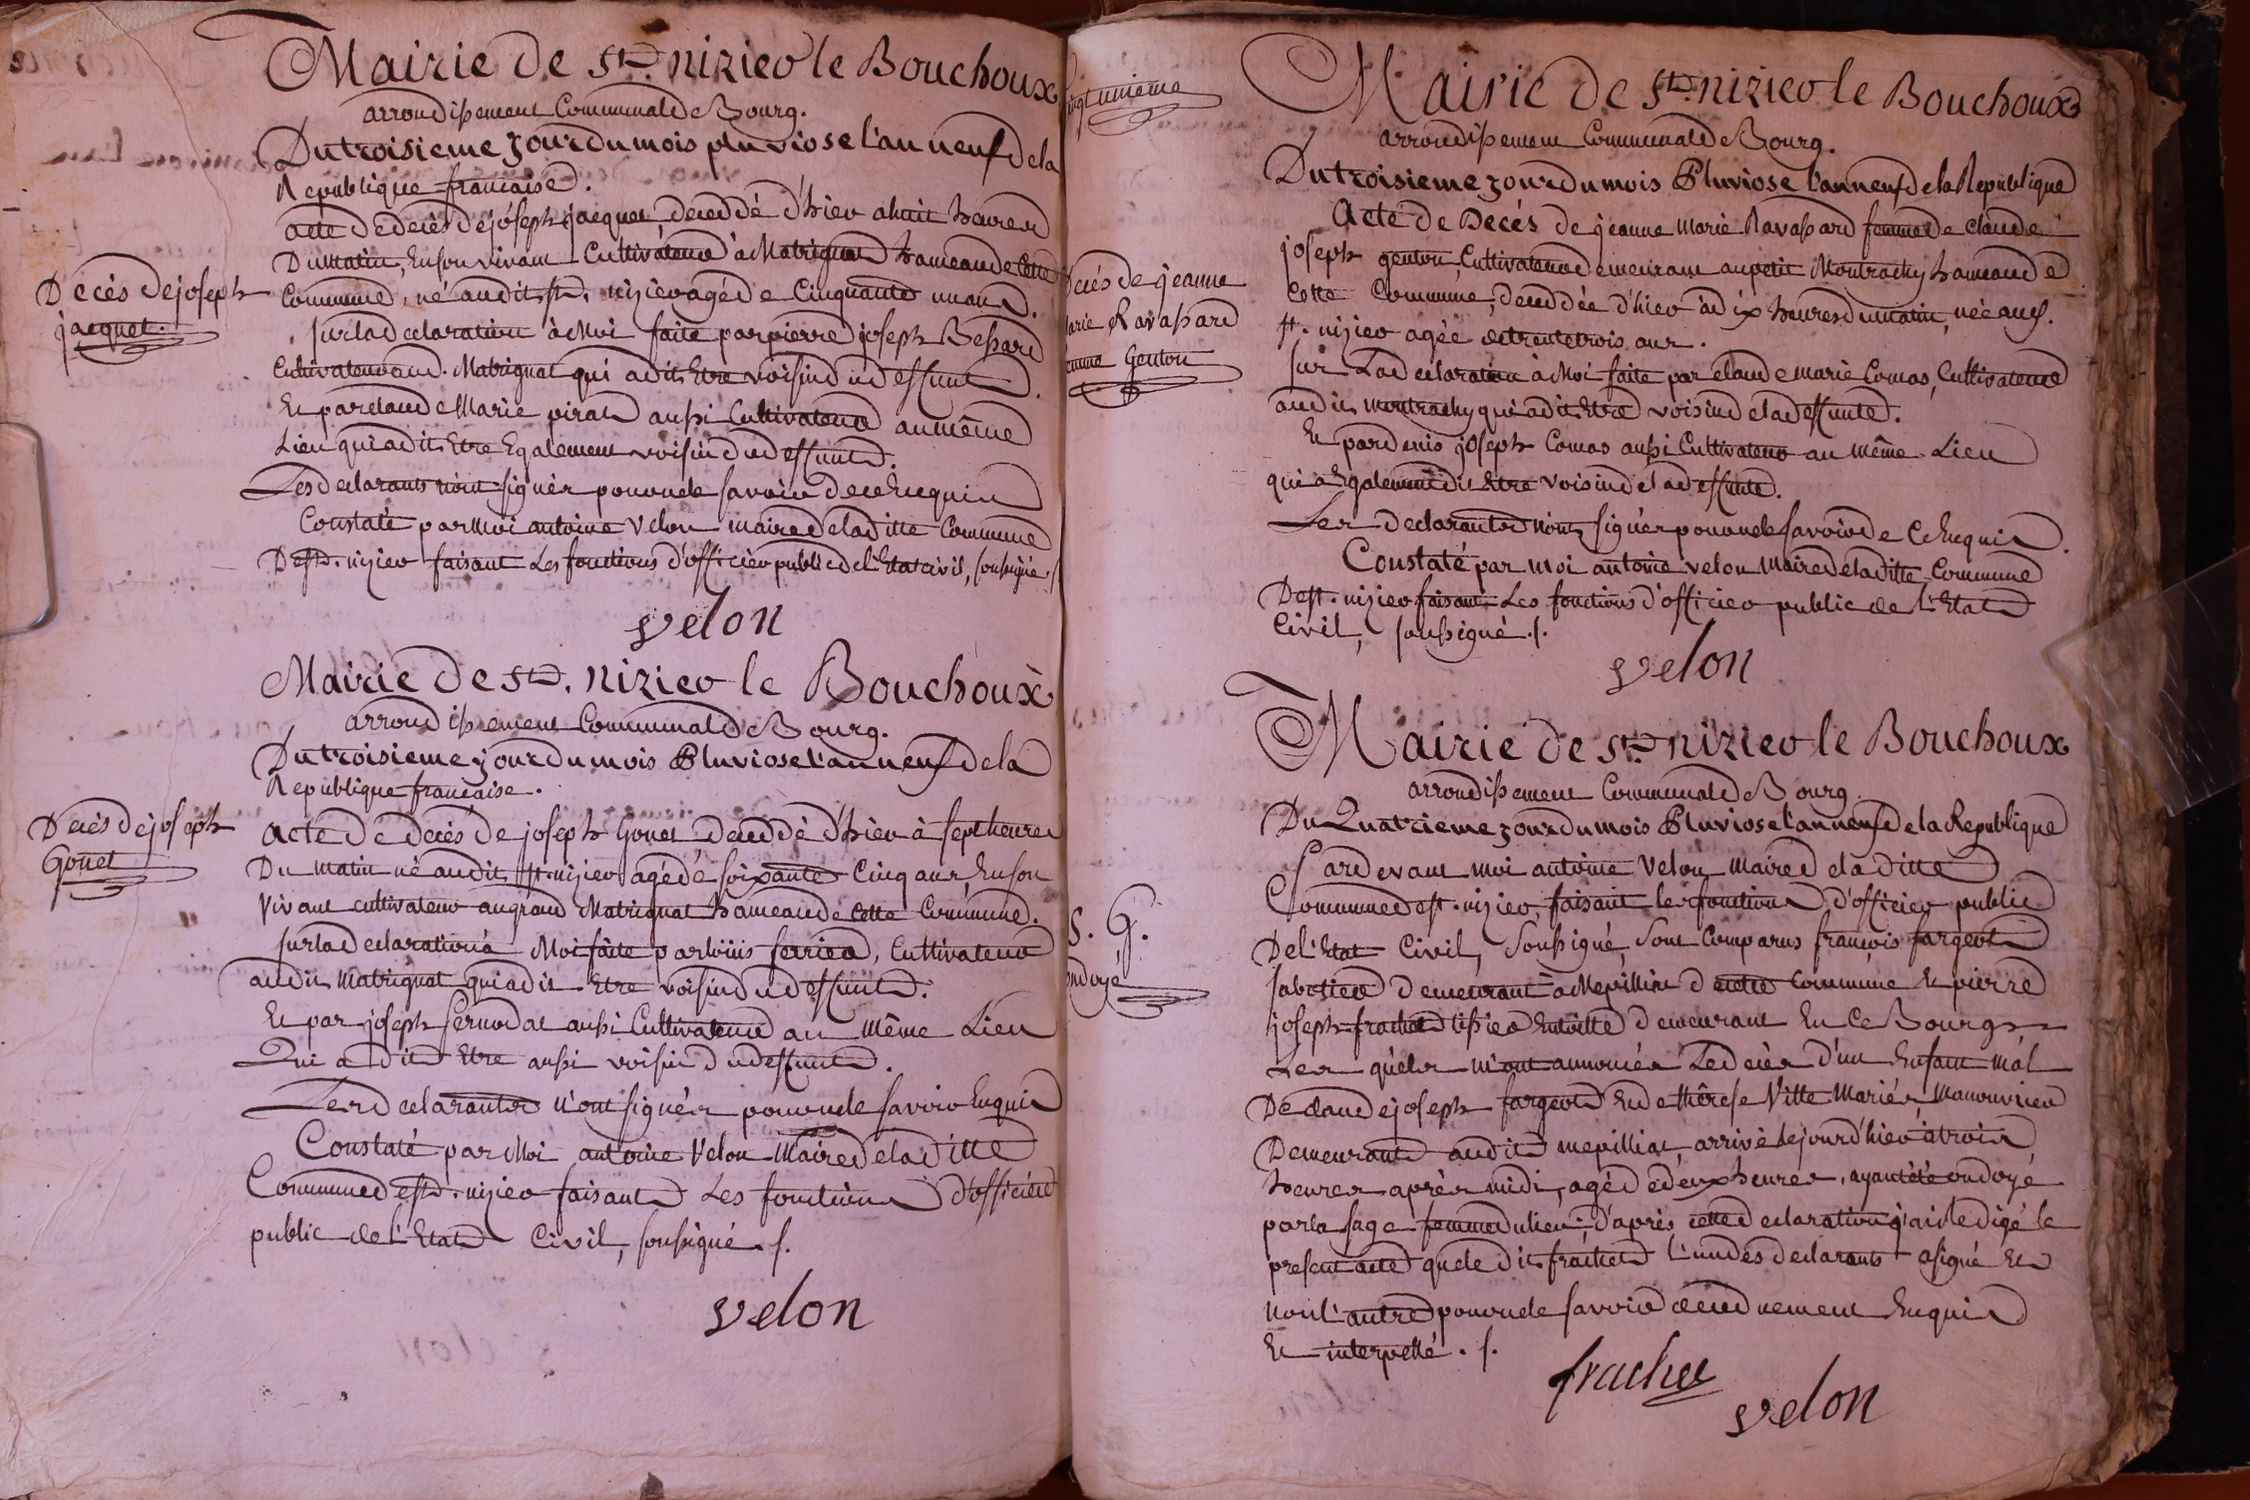 Mairie de St. nizier le Bouchoux
arrondissement Communal de Bourg.
Du troisieme jour du mois pluviose l'an neuf de la
Republique francaise.
acte de decès de joseph jacquet decedé d'hier a huit heures
Du matin, En son vivant Cultivateur à Matrignat hameau de Cette
Commune, né audit st. nizier agé de Cinquante un ans.
Decès de joseph
jacquet.
sur la declaration à Moi faite par pierre joseph Bessard
Cultivateur aud. Matrignat qui a dit Etre voisin du deffunt
Et par claude Marie pirat aussi Cultivateur au même
Lieu qui a dit Etre Egalement voisin du deffunt.
Les declarants n'ont signés pour ne le savoir de ce Enquis
Constaté par Moi antoine Velon maire de la ditte Commune
De st. nizier faisant Les fonctions d'officier public de l'Etat civil, soussigné
velon
Mairie de St. nizier le Bouchoux
arrondissement Communal de Bourg.
Du troisieme jour du mois Pluviose l'an neuf de la
Republique francaise.
Decès de joseph
Gonet
acte de decès de joseph Gonet decedé d'hier à sept heures
Du matin né audit st. nizier agé de soixante Cinq ans, En son
Vivant cultivateur au grand Matrignat hameau de cette Commune.
sur la declaration à Moi faite par loüis ferrier, Cultivateur
audit Matrignat qui a dit Etre voisin du deffunt.
Et par joseph fernodat aussi Cultivateur au même Lieu
Qui a dit Etre aussi voisin du deffunt.
Les declarants n'ont signés pour ne le savoir Enquis
Constaté par Moi antoine Velon Maire de la ditte
Commune de st. nizier faisant Les fonctions d'officier
public de l'Etat Civil, soussigné ./.
velon
vingt unieme
Mairie de St. nizier le Bouchoux
arrondissement Communal de Bourg.
Du troisieme jour du mois Pluviose l'an neuf de la Republique
Acte de Decés de jeanne Marie Ravassard femme de claude
joseph genton, Cultivateur demeurant au petit Montrachy hameau de
Cette Commune, decedée d'hier à dix heures du matin, née aud.
st. nizier agée de trente trois ans.
Decés de jeanne
Marie Ravassard
femme Genton
sur La declaration à Moi faite par claude marie Comas, Cultivateur
audit montrachy qui a dit Etre voisin de la deffunte.
Et par denis joseph Comas aussi Cultivateur au même Lieu
qui a Egalement dit Etre voisin de la deffunte.
Les declarants n'ont signés pour ne le savoir de Ce Enquis.
Constaté par moi antoine velon Maire de la ditte Commune
De st. nizier faisant Les fonctions d'officier public de l'Etat
Civil, soussigné ./.
velon
Mairie de St. nizier le Bouchoux
arrondissement Communal de Bourg
Du Quatrieme jour du mois Pluviose l'an neuf de la Republique
Pardevant moi antoine Velon maire de la ditte
Commune de st. nizier, faisant les fonctions d'officier public
De l'Etat Civil, soussigné, sont Comparus françois fargeot
sabotier demeurant à Mepilliat de cette Commune Et pierre
joseph frachet tissier En toille demeurant En Ce Bourg
S. G.
ondoyé
Les quels m'ont annoncés Le decès d'un Enfant mâl
De claude joseph fargeot Et de thérese Vitte Mariés, Manouvrier
Demeurant audit mepilliat, arrivé le jour d'hier à trois
heures après midi, agé de deux heures, ayant été ondoyé
par la sage femme du lieu; d'après cette declaration j'ai redigé le
present acte que le dit frachet l'un des declarants a signé Et
non l'autre pour ne le savoir de ce duement Enquis
Et interpellé ./.
frachet
velon